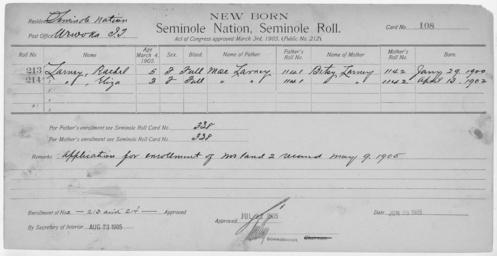 NEW BORN
Residence Seminole Nation
Seminole Nation, Seminole Roll.
Card No. 108
Post Office
Act of Congress approved March 3rd, 1905, (Public, No. 212).
Roll No. Age March 4, 1905. Sex. Blood. Name of Father Father's Roll No. Name of Mother Mother's Roll No. Born.
213 Larney, Rachel 5 F Full Moc Larney 1141 Betsy Larney 1142 Jany 29, 1900
214 " , Eliza 3 F Full " " 1141 " " 1142 April 13, 1902
For Father's enrollment see Seminole Roll Card No. 338
For Mother's enrollment see Seminole Roll Card No. 338
Remarks: Application for enrollment of Nos 1 and 2 received May 9, 1905
Enrollment of Nos — 213 and 214 — Approved
Approved
Date
By Secretary of Interior AUG 23 1905
Commissioner